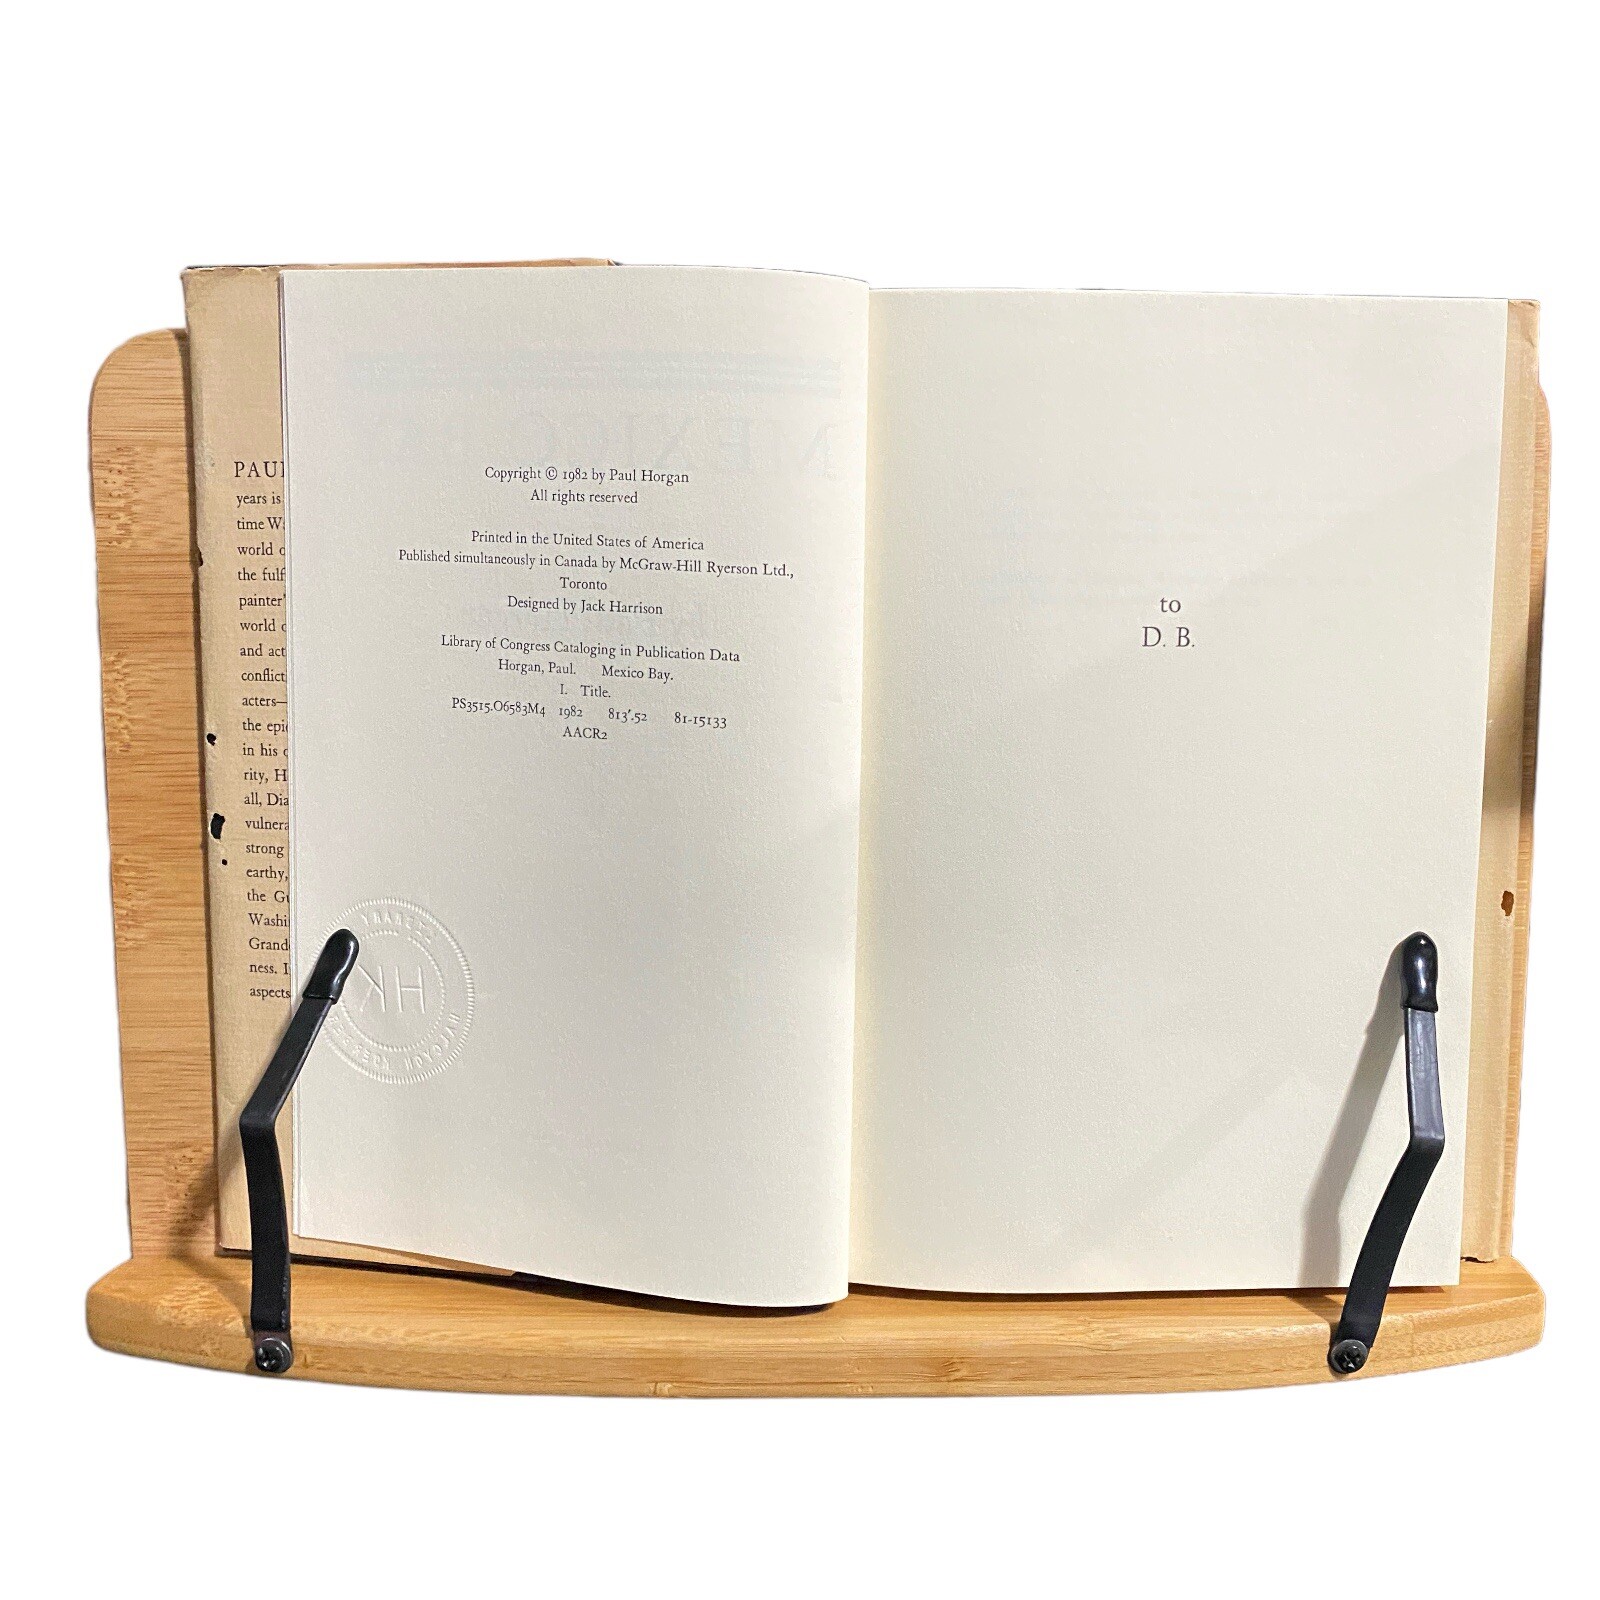 PAUL
years is
time W
world o
the fulf
painter'
world o
and act
conflict
acters—
the epi
in his
rity, H
all, Dia
vulnera
strong
earthy,
the Gu
Washi
Grand
ness. I
aspects
MEXICO
Copyright © 1982 by Paul Horgan
All rights reserved
Printed in the United States of America
Published simultaneously in Canada by McGraw-Hill Ryerson Ltd.,
Toronto
Designed by Jack Harrison
Library of Congress Cataloging in Publication Data
Horgan, Paul. Mexico Bay.
I. Title.
PS3515.O6583M4 1982 813'.52 81-15133
AACR2
HK
to
D. B.